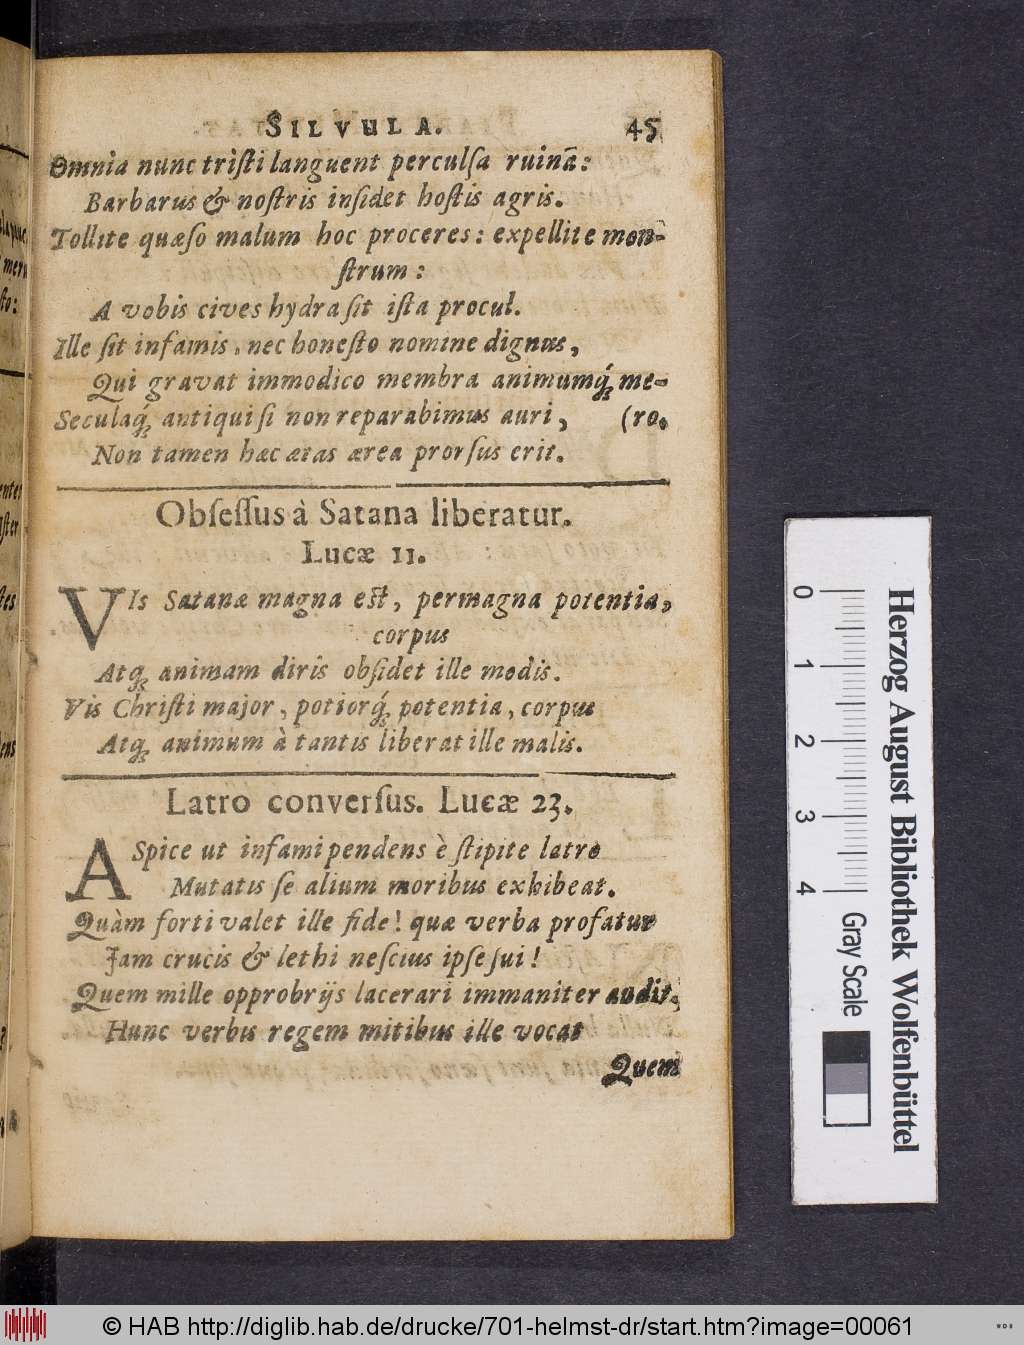 SILVULA. 45
Omnia nunc tristi languent perculsa ruinâ:
Barbarus & nostris insidet hostis agris.
Tollite quæso malum hoc proceres: expellite mon-
strum:
A vobis cives hydra sit ista procul.
Ille sit infamis, nec honesto nomine dignus,
Qui gravat immodico membra animumq́; me-
Seculaq́; antiqui si non reparabimus auri, (ro.
Non tamen hæc ætas ærea prorsus erit.
Obsessus à Satana liberatur.
Lucæ 11.
VIs Satanæ magna est, permagna potentia,
corpus
Atq; animam diris obsidet ille modis.
Vis Christi major, potiorq́; potentia, corpus
Atq; animum à tantis liberat ille malis.
Latro conversus. Lucæ 23.
ASpice ut infami pendens è stipite latro
Mutatis se alium moribus exhibeat.
Quàm forti valet ille fide! quæ verba profatur
Jam crucis & lethi nescius ipse sui!
Quem mille opprobrijs lacerari immaniter audit,
Hunc verbis regem mitibus ille vocat
Quem
0 1 2 3 4
Herzog August Bibliothek Wolfenbüttel
Gray Scale
© HAB http://diglib.hab.de/drucke/701-helmst-dr/start.htm?image=00061